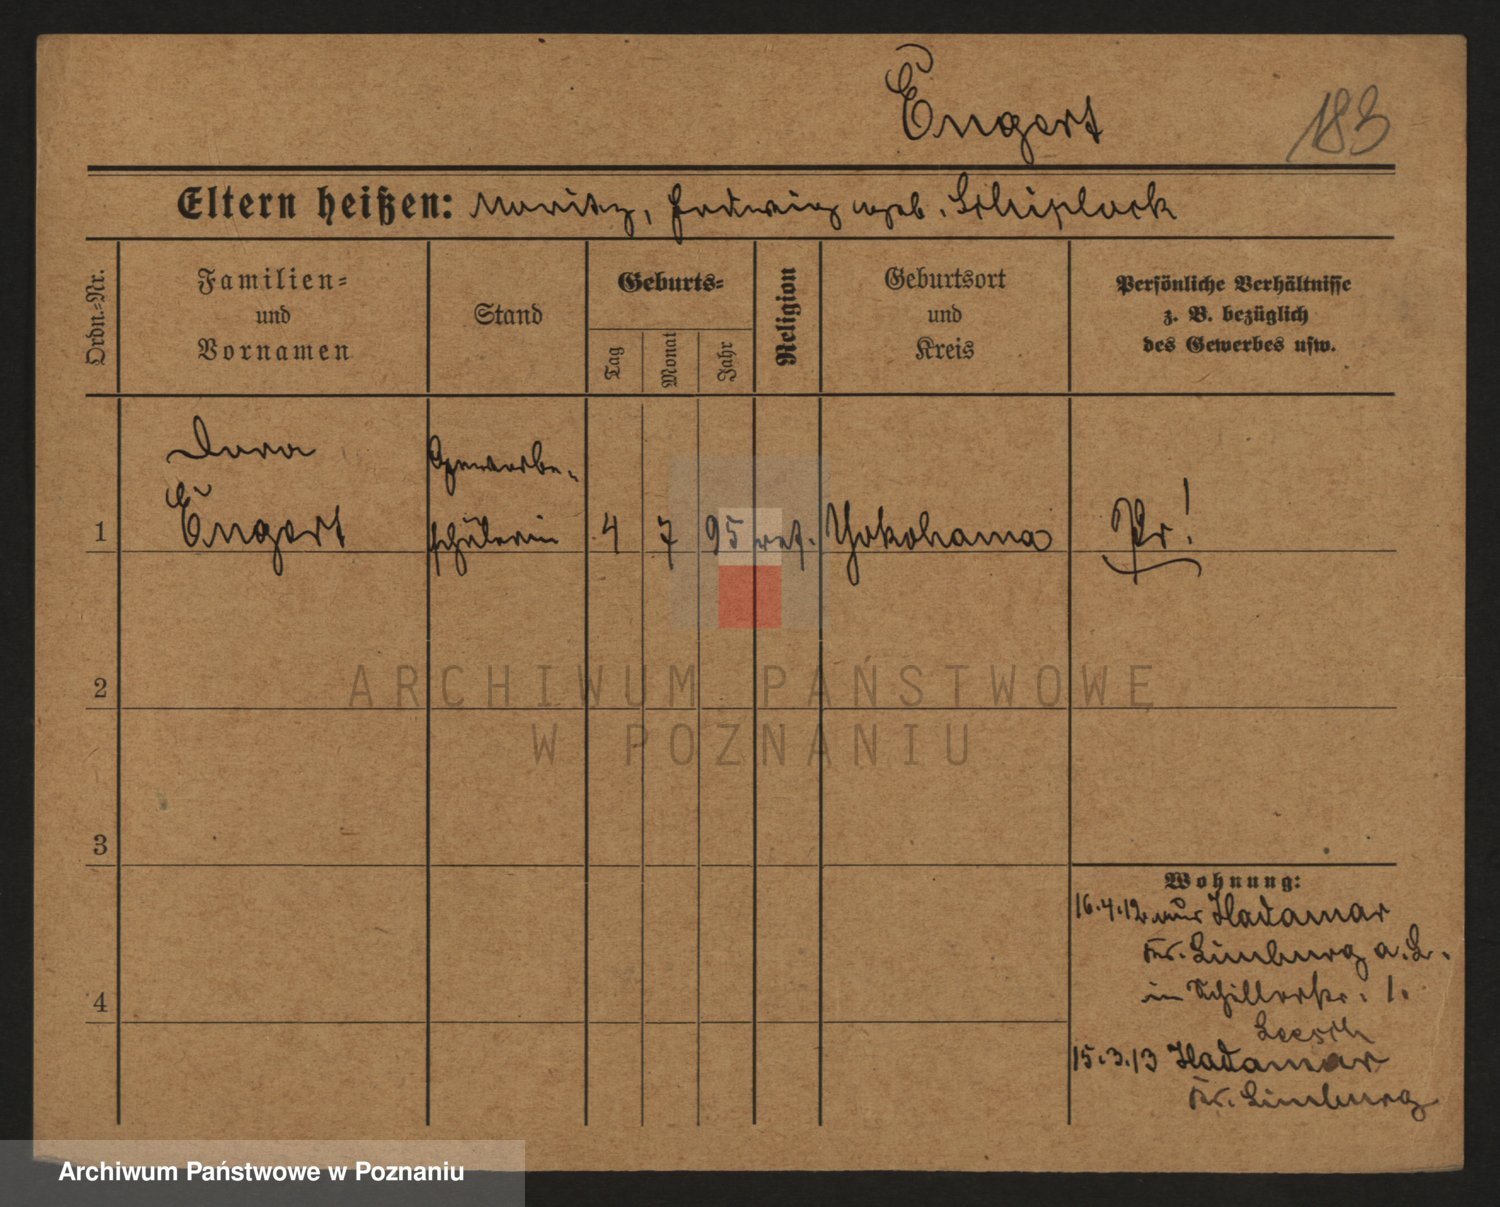 Engert
183
Eltern heißen: Moritz, Hedwig geb. Schiplack
Ordn.-Nr.
Familien-
und
Vornamen
Stand
Geburts-
Tag
Monat
Jahr
Religion
Geburtsort
und
Kreis
Persönliche Verhältnisse
z. B. bezüglich
des Gewerbes usw.
Dora
Gewerbe-
1 Engert schülerin 4 7 95 ref. Yokohama Pr!
ARCHIWUM PAŃSTWOWE
W POZNANIU
2
3
4
Wohnung:
16.4.12 aus Hadamar
Kr. Limburg a. L.
in Schillerstr. 1.
15.3.13 Hadamar
Kr. Limburg
Archiwum Państwowe w Poznaniu